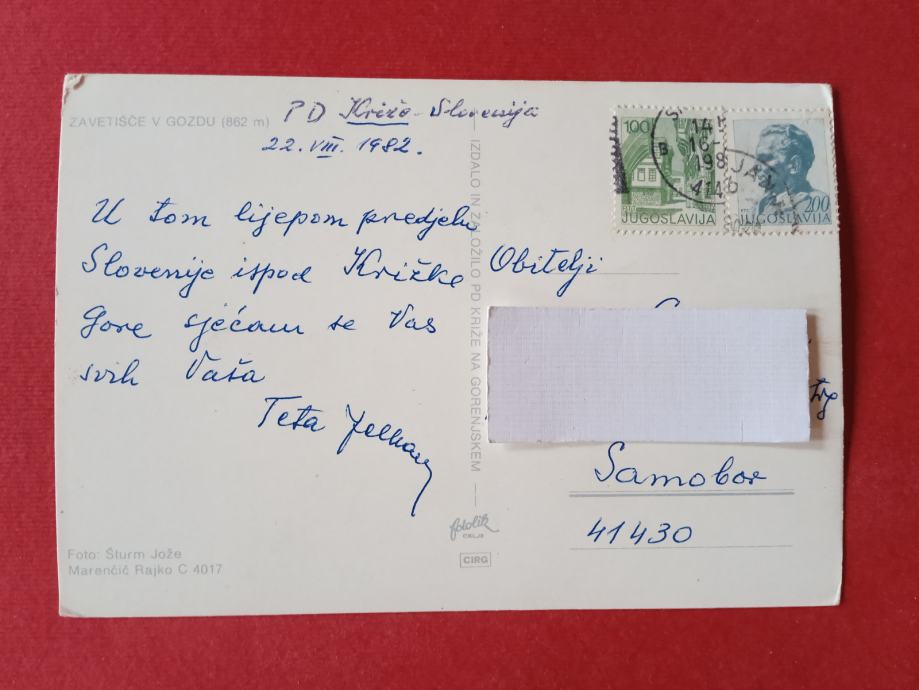 ZAVETIŠČE V GOZDU (862 m)
PD Križe - Slovenija
22. VIII. 1982.
U tom lijepom predjelu
Slovenije ispod Križke
Gore sjećam se Vas
svih Vaša
Teta
IZDALO IN ZALOŽILO PD KRIŽE NA GORENJSKEM
100
JUGOSLAVIJA
200
JUGOSLAVIJA
Obitelji
Trg
Samobor
41430
fotolik
CELJE
CIRG
Foto: Šturm Jože
Marenčič Rajko C 4017